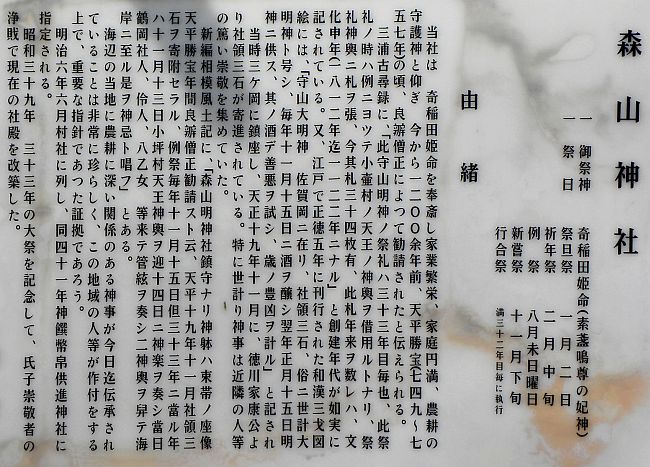 森山神社
一 御祭神 奇稲田姫命(素盞鳴尊の妃神)
一 祭日 祭旦祭 一月二日
祈年祭 二月中旬
例祭 八月末日曜日
新嘗祭 十一月下旬
行合祭 満三十二年目毎に執行
由緒
当社は 奇稲田姫命を奉斎し家業繁栄、家庭円満、農耕の
守護神と仰ぎ 今から一二〇〇余年前 天平勝宝(七四九〜七
五七年)の頃、良弁僧正によつて勧請されたと伝えられる。
三浦古尋録に、「此守山明神ノ祭礼ハ三十三年目毎也、此祭
礼ノ時ハ例ニヨツテ小壷村ノ天王ノ神輿ヲ借用ルトナリ、祭
礼神輿ニ札ヲ張、今其札三十四枚有、此札年来ヲ数レハ、文
化申年(一八一二年迄一一二二年ニナル」と創建年代が如実に
記されている。又、江戸で正徳五年に刊行された和漢三才図
絵には、「守山大明神 佐賀岡ニ在リ、社領三石、俗ニ世計大
明神ト号シ、毎年十一月十五日ニ酒ヲ醸シ翌年正月十五日明
神ニ供ス、其ノ酒デ善悪ヲ試シ、歳ノ豊凶ヲ計ル」と記され
当時三ケ岡に鎮座し、天正十九年十一月に、徳川家康公よ
り社領三石が寄進されている。特に世計り神事は近隣の人等
の篤い崇敬を集めていた。
新編相模風土記に、「森山明神社鎮守ナリ神躰ハ束帯ノ座像
天平勝宝年間良弁僧正勧請スト云、天平十九年十一月社領三
石ヲ寄附セラル、例祭毎年十一月十五日但三十三年ニ当ル年
ハ十一月十三日小坪村天王神輿ヲ迎十四日ニ神楽ヲ奏シ当日
鶴岡社人、伶人、八乙女 等来テ管絃ヲ奏シ二神輿ヲ舁テ海
岸ニ至ル是ヲ神忌ト唱フ」とある。
海辺の当地に農耕に深い関係のある神事が今日迄伝承され
ていることは非常に珍らしく、この地域の人等が作付をする
上で、重要な指針であつた証拠であろう。
明治六年六月村社に列し、同四十一年神饌幣帛供進神社に
指定される。
昭和三十九年 三十三年の大祭を記念して、氏子崇敬者の
浄財で現在の社殿を改築した。